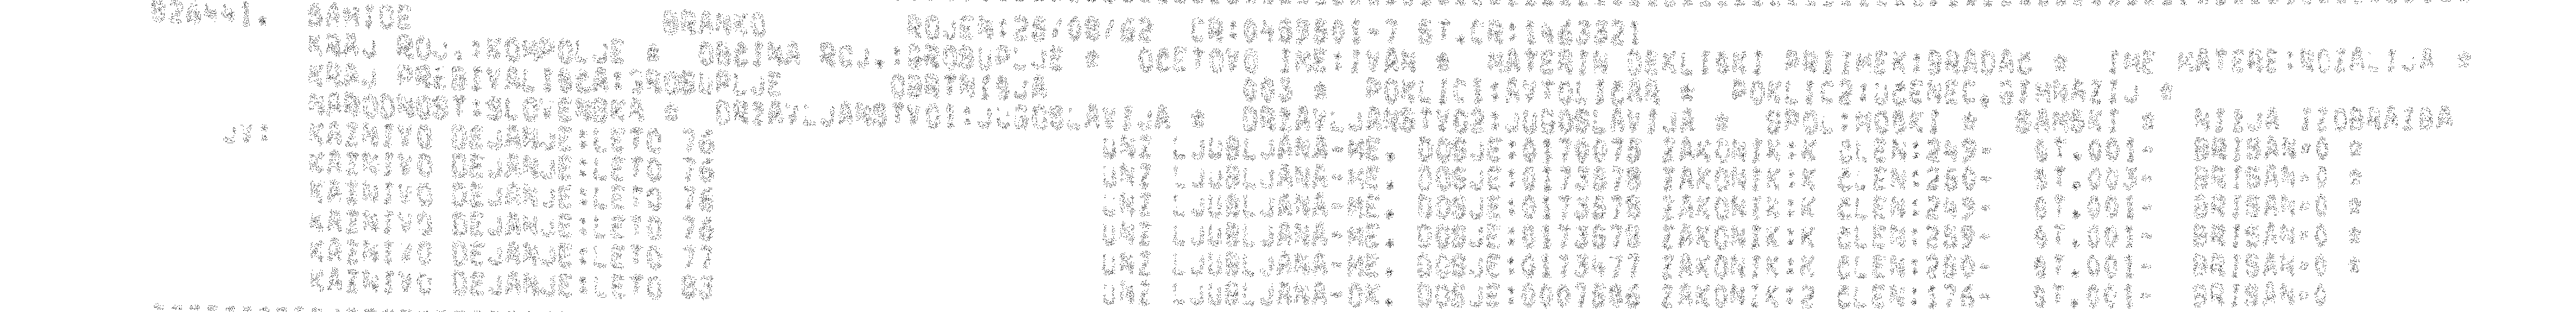 026441. SAMIDE BRANKO ROJEN:28/08/62 CR:0469801-7 ST.CR:1463321
KRAJ ROJ.:KOMPOLJE * OBCINA ROJ.:GROSUPLJE * OCETOVO IME:IVAN * MATERIN DEKLISKI PRIIMEK:BRADAC * IME MATERE:ROZALIJA *
KRAJ PREBIVALISCA:GROSUPLJE OBRTNISJA 003 * POKLIC1:AVTOLICAR * POKLIC2:UCENEC,GIMNAZIJ *
NARODNOST:SLOVENSKA * DRZAVLJANSTVO1:JUGOSLAVIJA * DRZAVLJANSTVO2:JUGOSLAVIJA * SPOL:MOSKI * SAMSKI * NIZJA IZOBRAZBA
JV: KAZNIVO DEJANJE:LETO 76 UNZ LJUBLJANA-ME. DOSJE:0170075 ZAKONIK:K CLEN:249- ST.001- BRISAN-0 *
KAZNIVO DEJANJE:LETO 76 UNZ LJUBLJANA-ME. DOSJE:0173678 ZAKONIK:K CLEN:250- ST.003- BRISAN-0 *
KAZNIVO DEJANJE:LETO 76 UNZ LJUBLJANA-ME. DOSJE:0173678 ZAKONIK:K CLEN:249- ST.001- BRISAN-0 *
KAZNIVO DEJANJE:LETO 76 UNZ LJUBLJANA-ME. DOSJE:0173678 ZAKONIK:K CLEN:259- ST.001- BRISAN-0 *
KAZNIVO DEJANJE:LETO 77 UNZ LJUBLJANA-ME. DOSJE:0173477 ZAKONIK:K CLEN:250- ST.001- BRISAN-0 *
KAZNIVO DEJANJE:LETO 83 UNZ LJUBLJANA-OK. DOSJE:0007686 ZAKONIK:2 CLEN:176- ST.001- BRISAN-0